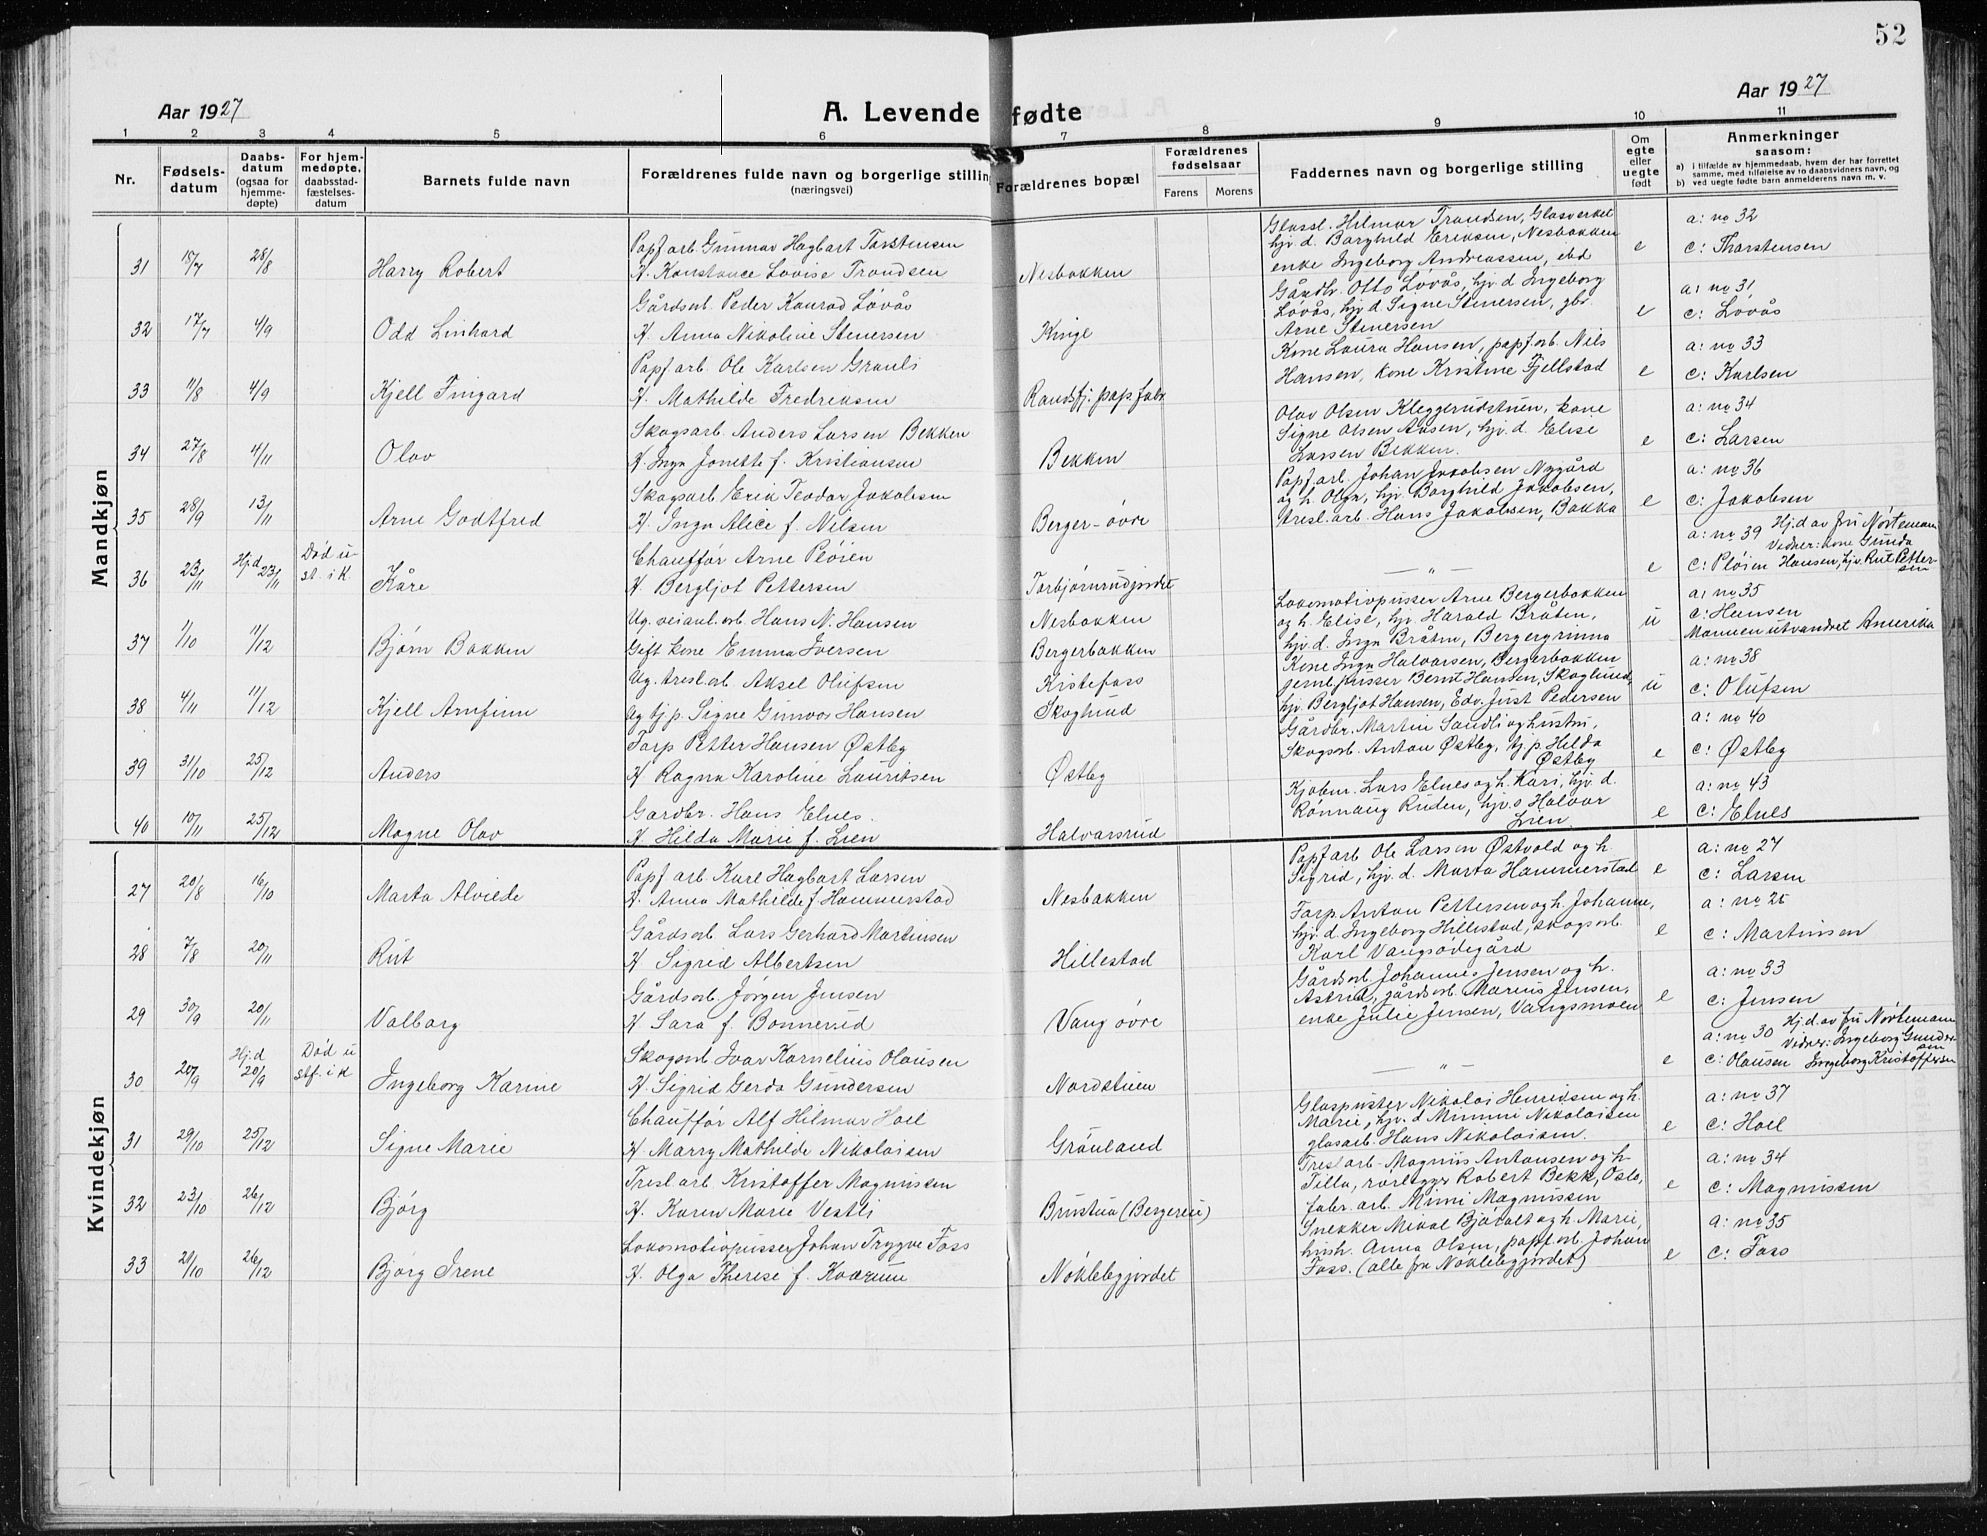 52
Aar 1927
A. Levende fødte
Aar 1927
1 2 3 4 5 6 7 8 9 10 11
Nr.
Fødsels-datum
Daabs-datum (ogsaa for hjemme-døpte)
For hjem-medøpte, daabsstad-fæstelses-datum
Barnets fulde navn
Forældrenes fulde navn og borgerlige stilling (næringsvei)
Forældrenes bopæl
Forældrenes fødselsaar
Farens Morens
Faddernes navn og borgerlige stilling
Om egte eller uegte født
Anmerkninger saasom:
a) i tilfælde av hjemmedaab, hvem der har forrettet samme, med tilføielse av to daabsvidners navn, og
b) ved uegte fødte barn anmelderens navn m. v.
Mandkjøn
Papf arb. Gunnar Hagbart Torstensen
31 15/7 28/8 Harry Robert H. Konstance Lovise Trondsen Nesbakken
Glassl. Hilmar Trondsen, Glasverket
hjv. d. Borghild Eriksen, Nesbakken
enke Ingeborg Andreassen, ibd
e
a: no 32
c: Thorstensen
Gårdsarb. Peder Konrad Løvås
32 17/7 4/9 Odd Linhard H. Anna Nikoline Stenersen Kinge
Gårdbr. Otto Løvås, hjv. d. Ingeborg
Løvås, hjv. d. Signe Stenersen, gbr.
Arne Stenersen
e
a: no 31
c: Løvås
Papf arb. Ole Karlsen Grauli
33 11/8 4/9 Kjell Fingard H. Mathilde Fredriksen Randsfj. pap. fabr.
Kone Laura Hansen, papf. arb. Nils
Hansen, kone Kristine Fjellstad
e
a: no 33
c: Karlsen
Skogsarb. Anders Larsen Bekken
34 27/8 4/11 Olav H. Inga Jonette f. Kristiansen Bekken
Olav Olsen Kleggerudstuen, kone
Signe Olsen Aasen, hjv. d. Elise
Larsen Bekken.
e
a: no 34
c: Larsen
Skogsarb Erik Teodor Jakobsen
35 28/9 13/11 Arne Godtfred H. Inga Alice f. Nilsen Berger-øvre
Papf arb. Johan Jakobsen Nygård
og h. Olga, hjv. Borghild Jakobsen,
tresl. arb. Hans Jakobsen, Bakka
e
a: no 36
c: Jakobsen
Chauffør Arne Pløien
36 23/11 Hj.d 23/11 Død u. st. i k. Kåre H. Bergljot Pettersen Torbjørnrudjordet
— " —
e
a: no 39 Hj.d av fru Nørtemann
Vedner: kone Gunda
c: Pløien Hansen, hjv. Rut Pettersen
Ug. veianl. arb. Hans N. Hansen Nesbakken
37 1/10 11/12 Bjørn Bakken Gift kone Emma Iversen Bergerbakken
Lokomotivpusser Arne Bergerbakken
og h. Elise, hjv. Harald Bråten,
hjv. d. Inga Bråten, Bergergrinna
u
a: no 35
c: Hansen
Mannen utvandret Amerika
Ug. tresl. arb. Aksel Olufsen Kistefoss
38 4/11 11/12 Kjell Arnfinn Ug hj. p. Signe Gunvor Hansen Skoglund
Kone Inga Halvorsen, Bergerbakken
jernepusser Bernt Hansen, Skoglund,
hjv. Bergljot Hansen, Edv. Just Pedersen
u
a: no 38
c: Olufsen
Forp Petter Hansen Østby
39 31/10 25/12 Anders H Ragna Karoline Lauritsen Østby
Gårdbr. Martin Sandli og hustru,
Skogsarb. Anton Østby, hj. p. Hilda
Østby
e
a: no 40
c: Østby
Gardbr. Hans Elnes.
40 10/11 25/12 Magne Olav H Hilda Marie f. Lien Halvarsrud
Kjøbm. Lars Elnes og h. Kari, hjv. d.
Rønnaug Ruden, hjv. s. Halvor
Lien
e
a: no 43
c: Elnes
Kvindekjøn
Papf arb. Karl Hagbart Larsen
27 20/8 16/10 Marta Alvilde H. Anna Mathilde f. Hammerstad Nesbakken
Papf arb Ole Larsen Østvold og h.
Sigrid, hjv. d. Marta Hammerstad
e
a: no 27
c: Larsen
Gårdsarb Lars Gerhard Martinsen
28 7/8 20/11 Rut H Sigrid Albertsen Hillestad
Forp. Anton Pettersen og h. Johanne,
hjv. d. Ingeborg Hillestad, skogsarb.
Karl Vangsødegård
e
a: no 25
c: Martinsen
Gårdsarb Jørgen Jensen
29 30/9 20/11 Valborg H Sara f. Bonnerud Vang øvre
Gårdsarb Johannes Jensen og h.
Astrid, gårdsarb. Marius Jensen,
enke Julie Jensen, Vangsmoen
e
a: no 33
c: Jensen
Skogsarb Ivar Kornelius Olausen
30 20/9 Hj.d 20/9 Død u stf. i k Ingeborg Karine H. Sigrid Gerda Gundersen Nordstuen
— " —
e
a: no 30 Hj.d av fru Nørtemann
Vedner: Ingeborg Gundersen
c: Olausen Ingeborg Kristoffersen
Chauffør Alf Hilmar Hoel
31 29/10 25/12 Signe Marie H. Marry Mathilde Nikolaisen Grønland
Glaspuster Nikolai Henriksen og h.
Marie, hjv. d Mimmi Nikolaisen
glasarb. Hans Nikolaisen.
e
a: no 37
c: Hoel
Tresl arb Kristoffer Magnussen
32 23/10 26/12 Bjørg H. Karen Marie Vestli Brustua (Bergereie)
Tresl arb- Magnus Antonsen og h.
Tilla, rørlegger Robert Bekk, Oslo,
fabr. arb. Mimi Magnussen
e
a: no 34
c: Magnussen
Lokomotivpusser Johan Trygve Foss
33 21/10 26/12 Bjørg Irene H. Olga Therese f. Kværne Nøklebygjordet
Snekker Mikal Bjøralt og h. Marie,
hush. Anna Olsen, papf. arb. Johan
Foss. (alle fra Nøklebygjordet)
e
a: no 35
c: Foss